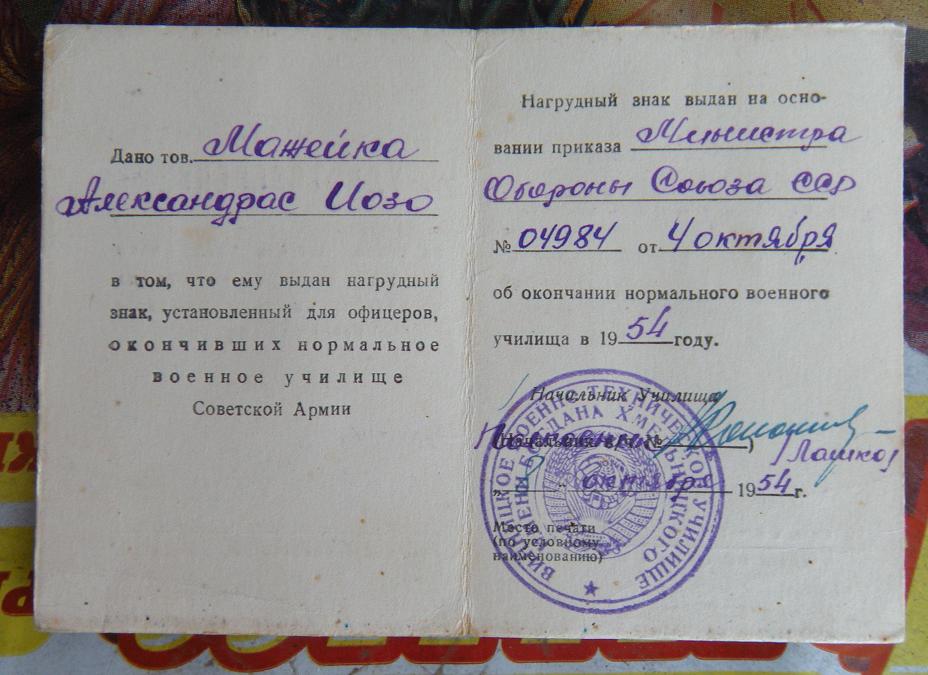 Дано тов. Мажейка
Александрас Иозо
в том, что ему выдан нагрудный
знак, установленный для офицеров,
окончивших нормальное
военное училище
Советской Армии
Нагрудный знак выдан на осно-
вании приказа Министра
Обороны Союза ССР
№ 04984 от 4 октября
об окончании нормального военного
училища в 1954 году.
Начальник Училища
(Начальник в/ч №
)
" октябр 1954 г.
Место печати
(по условному
наименованию)
ВОЕННО-ТЕХНИЧЕСКОЕ УЧИЛИЩЕ
ИМЕНИ БОГДАНА ХМЕЛЬНИЦКОГО